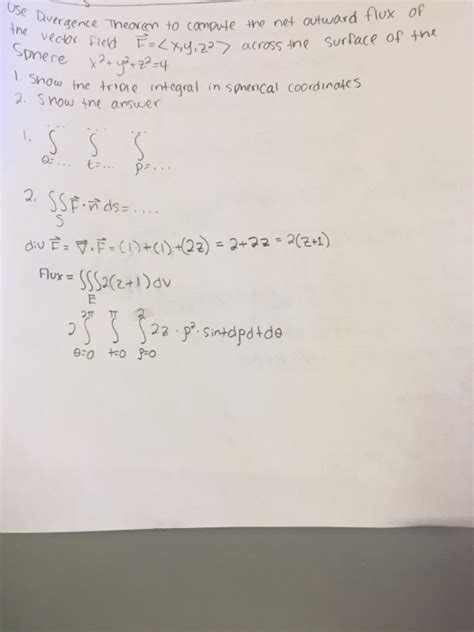 Use Divergence Theorem to compute the net outward flux of
the vector field F⃗=<x,y,z²> across the surface of the
Sphere x²+y²+z²=4
1. Show the triple integral in spherical coordinates
2. Show the answer
1. ∫ ∫ ∫
... ... ...
θ=... t=... ρ=...
2. ∬F⃗·n⃗ds=....
S
div F⃗ = ∇⃗·F⃗ = (1)+(1)+(2z) = 2+2z = 2(z+1)
Flux = ∭2(z+1)dv
E
2π π 2
2∫ ∫ ∫2z·ρ²·sintdρdtdθ
θ=0 t=0 ρ=0